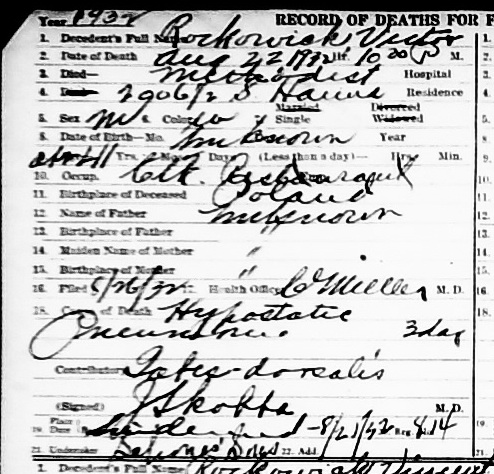 Year 1932 RECORD OF DEATHS FOR F
1. Decedent's Full Name Rockowick Victor
2. Date of Death Aug 22 1932 Hr. 10 20 P M.
3. Died— Methodist Hospital
4. 2906 1/2 S Residence
Married Divorced
5. Sex M 6. Color w 7 Single Widowed
8. Date of Birth—Mo. unknown Year
about 41 Yrs. Mo. Days (Less than a day)— Hrs. Min.
10. Occup. Restaurant
11. Birthplace of Deceased Poland
12. Name of Father unknown
13. Birthplace of Father "
14. Maiden Name of Mother "
15. Birthplace of Mother "
16. Filed 8/26/32 17. Health Officer M. D.
18. Cause of Death Hypostatic
Pneumonia 3 day
Contributory Tabes-dorsalis
(Signed) J Skobba M. D.
Place
19. Date Reg. 814
21. Undertaker 22. Add.
1. Decedent's Full Name